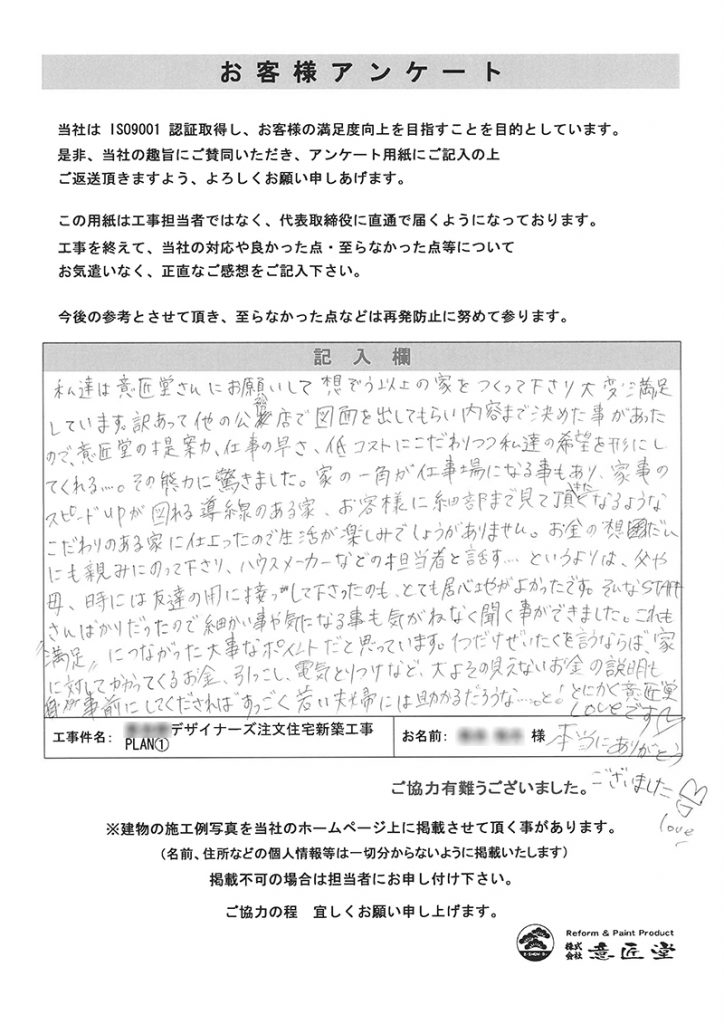 お客様アンケート
当社は ISO9001 認証取得し、お客様の満足度向上を目指すことを目的としています。
是非、当社の趣旨にご賛同いただき、アンケート用紙にご記入の上
ご返送頂きますよう、よろしくお願い申しあげます。
この用紙は工事担当者ではなく、代表取締役に直通で届くようになっております。
工事を終えて、当社の対応や良かった点・至らなかった点等について
お気遣いなく、正直なご感想をご記入下さい。
今後の参考とさせて頂き、至らなかった点などは再発防止に努めて参ります。
記入欄
私達は意匠堂さんにお願いして想ぞう以上の家をつくって下さり大変満足
しています。訳あって他の公務店で図面を出してもらい内容まで決めた事があった
ので、意匠堂の提案力、仕事の早さ、低コストにこだわりつつ私達の希望を形にし
てくれる…。その能力に驚きました。家の一角が仕事場になる事もあり、家事の
スピードUPが図れる導線のある家、お客様に細部まで見て頂きたくなるような
こだわりのある家に仕上ったので生活が楽しみでしょうがありません。お金の想だん
にも親みにのって下さり、ハウスメーカーなどの担当者と話す…というよりは、父や
母、時には友達の用に接っして下さったのも、とても居心地がよかったです。そんなSTAFF
さんばかりだったので細かい事や気になる事も気がねなく聞く事ができました。これも
〝満足〟につながった大事なポイントだと思っています。1つだけぜいたくを言うならば、家
に対してかかってくるお金、引っこし、電気とりつけなど、大よその見えないお金の説明も
事前にしてくだされば すっごく若い夫婦には助かるだろうな…。と！とにかく意匠堂
LOVEです
工事件名： デザイナーズ注文住宅新築工事
PLAN①
お名前： 様
本当にありがとう
ございました
love
ご協力有難うございました。
※建物の施工例写真を当社のホームページ上に掲載させて頂く事があります。
（名前、住所などの個人情報等は一切分からないように掲載いたします）
掲載不可の場合は担当者にお申し付け下さい。
ご協力の程　宜しくお願い申し上げます。
Reform & Paint Product
株式会社 意匠堂